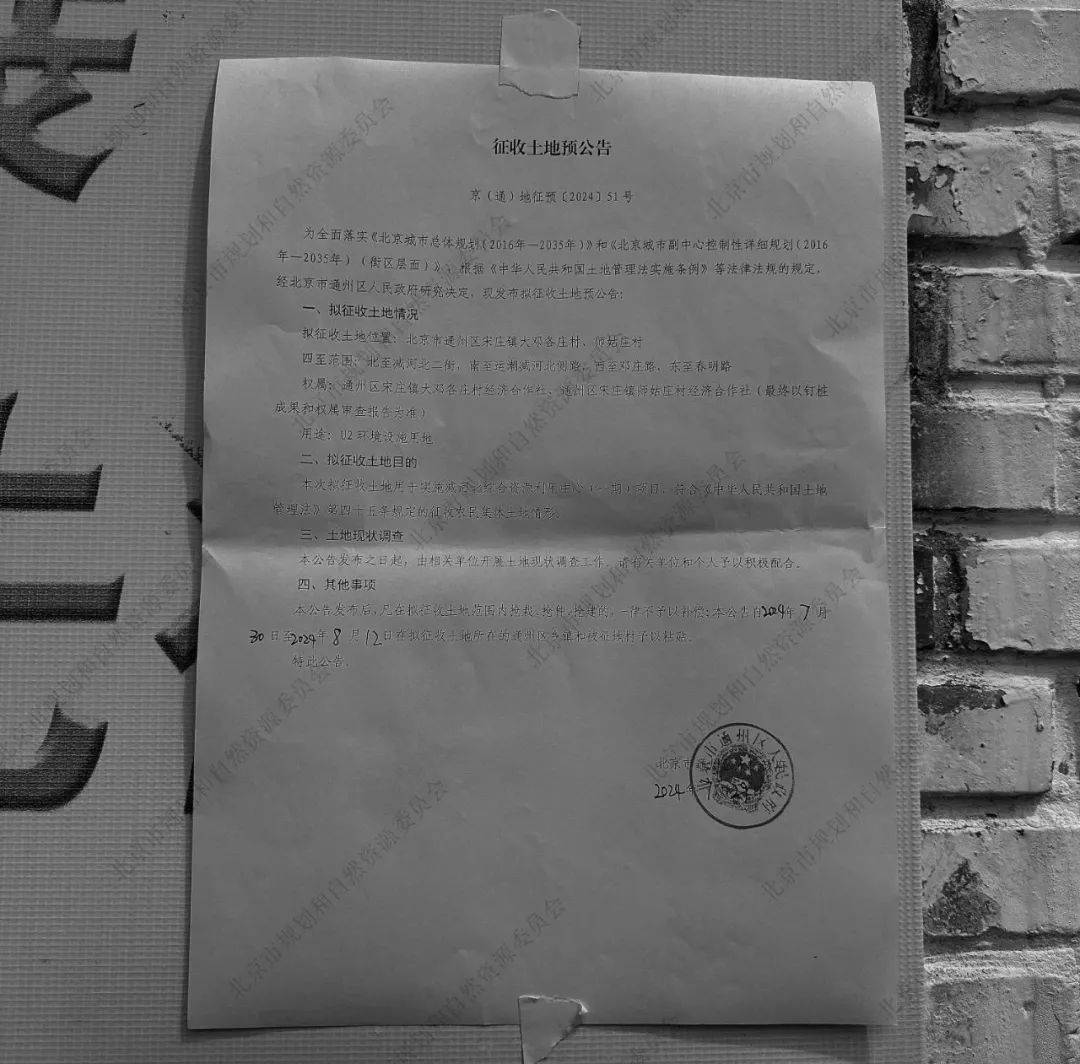 征收土地预公告
京（通）地征预〔2024〕51号
为全面落实《北京城市总体规划（2016年—2035年）》和《北京城市副中心控制性详细规划（2016
年—2035年）（街区层面）》，根据《中华人民共和国土地管理法实施条例》等法律法规的规定，
经北京市通州区人民政府研究决定，现发布拟征收土地预公告：
一、拟征收土地情况
拟征收土地位置：北京市通州区宋庄镇大邓各庄村、师姑庄村
四至范围：北至减河北二街，南至运潮减河北侧路，西至邓庄路，东至春明路
权属：通州区宋庄镇大邓各庄村经济合作社、通州区宋庄镇师姑庄村经济合作社（最终以钉桩
成果和权属审查报告为准）
用途：U2环境设施用地
二、拟征收土地目的
本次拟征收土地用于实施减河北综合资源利用中心（一期）项目，符合《中华人民共和国土地
管理法》第四十五条规定的征收农民集体土地情形。
三、土地现状调查
本公告发布之日起，由相关单位开展土地现状调查工作，请有关单位和个人予以积极配合。
四、其他事项
本公告发布后，凡在拟征收土地范围内抢栽、抢种、抢建的，一律不予以补偿；本公告自2024年7月
30日至2024年8月12日在拟征收土地所在的通州区乡镇和被征地村予以张贴。
特此公告。
北京市通州区人民政府
北京市
2024
北京市规划和自然资源委员会